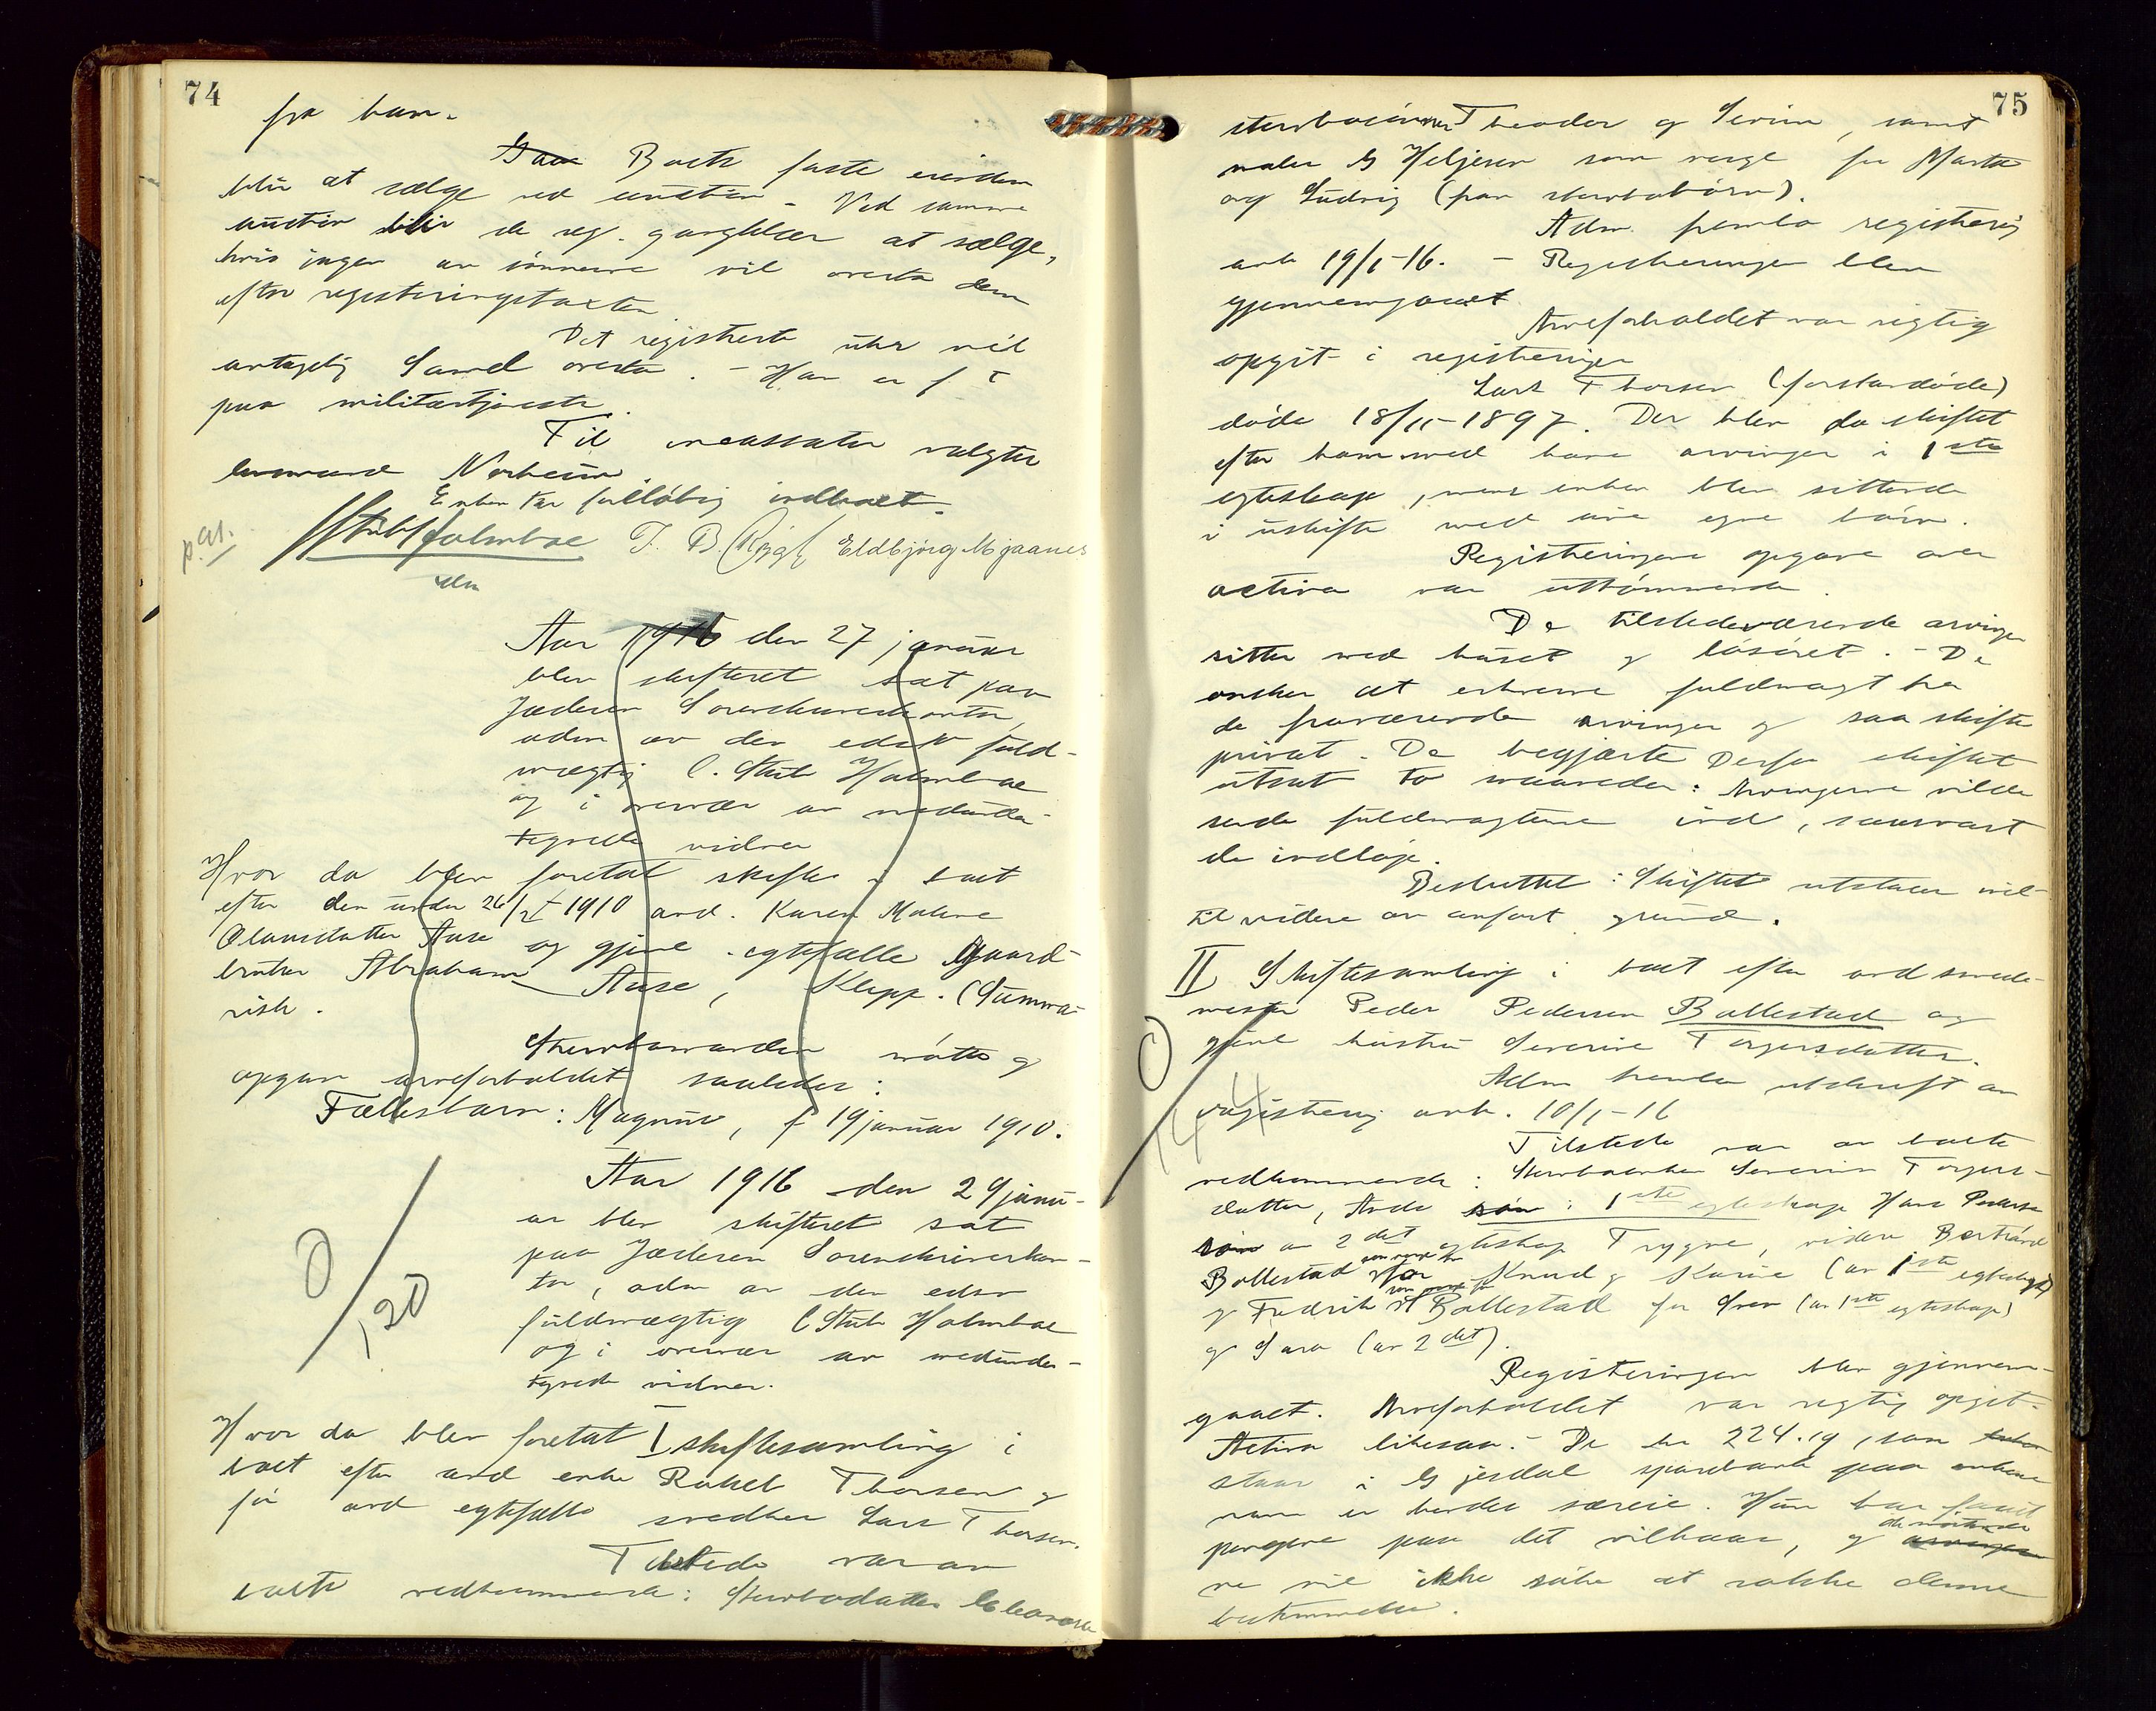 74
fra ham.
Boets faste eiendom
blir at sælge ved auction. Ved samme
auction blir de reg. gangklær at sælge,
hvis ingen av sønnerne vil overta dem
efter registreringstaxten
Det registrerte uhr vil
antagelig Sawel overta. - Han er f t
paa militærtjeneste.
Til incassator valgtes
lensmand Norheim.
Enken har foreløbig indboet.
p.at.
Stub Holmboe T. B. Eldbjørg Mjaanes
Aar 1916 den 27 januar
blev skifteret sat paa
Jæderen Sorenskriverkontor,
adm av den edsv fuld-
mægtig C. Stub Holmboe
og i overvær av medunder-
tegnede vidner
Hvor da blev foretat skifte i boet
efter den under 26/ 1910 avd. Karen Malene
Olausdatter Aase og gjenl. egtefælle Gaard-
bruker Abraham Aase, Klepp. (Summa-
risk.
Stervboenkemanden møtte og
opgav arveforholdet saaledes:
Fællesbarn: Magnus, f 19 januar 1910.
Aar 1916 den 29 janu-
ar blev skifteret sat
paa Jæderen Sorenskriverkon-
tor, adm av den edsv
fuldmægtig C Stub Holmboe
og i overvær av medunder-
tegnede vidner.
0
,20
Hvor da blev foretat I skiftesamling i
boet efter avd enke Rakel Thorsen og
før avd egtefælle snedker Lars Thorsen.
Tilstede var av
boets vedkommende: Stervbodatter Eleanora
75
stervbosønner Theodor og Severin, samt
maler G Heljesen som verge for Martha
og Ludvig (paa stervbobørn).
Adm. fremla registrering
avh 19/1-16. - Registreringen blev
gjennemgaaet
Arveforholdet var rigtig
opgit i registreringen
Lars Thorsen (førstavdøde)
døde 18/11-1897. Der blev da skiftet
efter ham med hans arvinger i 1ste
egteskap, mens enken blev sittende
i uskifte med sine egne børn.
Registreringens opgave over
activa var uttømmende.
De tilstedeværende arvinger
sitter med huset og løsøret. - De
ønsker at erhverve fuldmagt fra
de fraværende arvinger og saa skifte
privat. De begjærte derfor skiftet
utsat to maaneder. Arvingerne vilde
sende fuldmagterne ind, saasnart
de indløp.
Besluttet: Skiftet utstaar ind-
til videre av anført grund.
II Skiftesamling i boet efter avd smede-
mester Peder Pedersen Bollestad og
gjenl hustru Severine Torgersdatter.
Adm fremla utskrift av
registrering avh. 10/1-16
0
14 4
Tilstede var av boets
vedkommende: Stervboenken Severine Torgers-
datter, Avdø søn i 1ste egteskap Hans Pedersen
søn av 2det egteskap Trygve, videre Bertrand
Bollestad som verge for Knud og Karine (av 1ste egteskap)
og Fredrik Bollestad som verge for Sven (av 1ste egteskap)
og Sara (av 2det).
Registreringen blev gjennem-
gaaet. Arveforholdet var rigtig opgit.
Activa likesaa. - De kr 224.19, som
staar i Gjesdal sparebank paa enkens
navn er hendes særeie. Hun har faaet
pengene paa det vilkaar, og de møtende
ne vil ikke søke at rokke denne
bestemmelse.